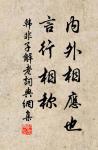 內外相應也
言行相称
韩非子解老詞典網集